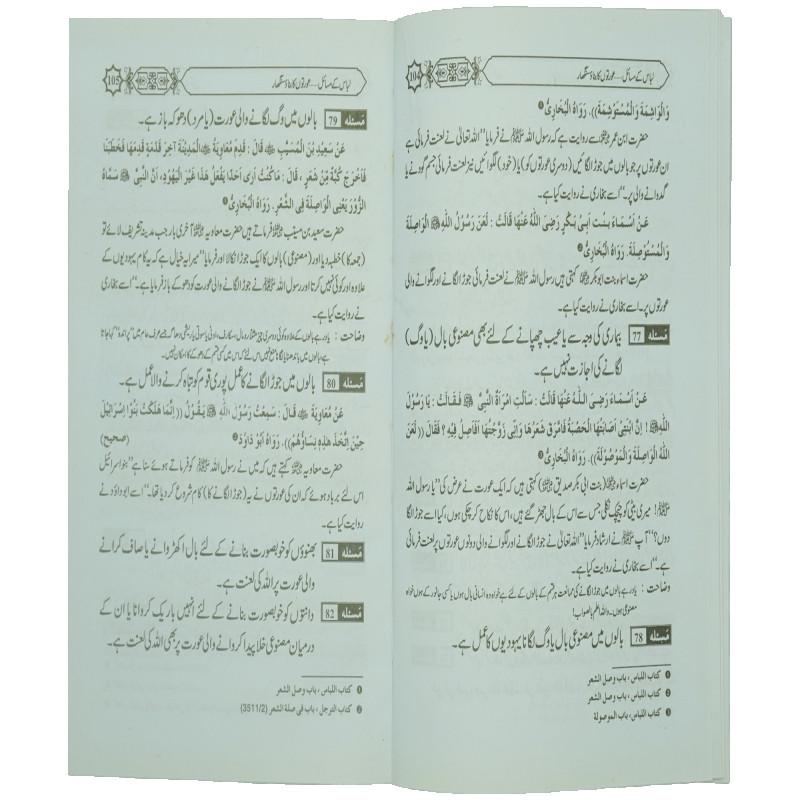 لباس کے مسائل ... عورتوں کا بناؤ سنگھار
104
وَالْوَاشِمَةَ وَالْمُسْتَوْشِمَةَ)). رَوَاهُ الْبُخَارِيُّ❶
حضرت ابن عمر سے روایت ہے کہ رسول اللہ ﷺ نے فرمایا ”اللہ تعالیٰ نے لعنت فرمائی ہے
ان عورتوں پر جو بالوں میں جوڑا لگائیں (دوسری عورتوں کو) یا (خود) لگوائیں نیز لعنت فرمائی جسم گودنے یا
گدوانے والی پر۔“ اسے بخاری نے روایت کیا ہے۔
عَنْ أَسْمَاءَ بِنْتِ أَبِيْ بَكْرٍ رَضِيَ اللّٰهُ عَنْهَا قَالَتْ : لَعَنَ رَسُوْلُ اللّٰهِ ﷺ الْوَاصِلَةَ
وَالْمُسْتَوْصِلَةَ. رَوَاهُ الْبُخَارِيُّ❷
حضرت اسماء بنت ابوبکر کہتی ہیں رسول اللہ ﷺ نے لعنت فرمائی جوڑا لگانے اور لگوانے والی
عورتوں پر۔ اسے بخاری نے روایت کیا ہے۔
مسئلہ 77 بیماری کی وجہ سے یا عیب چھپانے کے لئے بھی مصنوعی بال (یا وگ)
لگانے کی اجازت نہیں ہے۔
عَنْ أَسْمَاءَ رَضِيَ اللّٰهُ عَنْهَا قَالَتْ : سَأَلَتِ امْرَأَةٌ النَّبِيَّ ﷺ فَقَالَتْ : يَا رَسُوْلَ
اللّٰهِ ﷺ ! إِنَّ ابْنَتِيْ أَصَابَتْهَا الْحَصْبَةُ فَامَّرَقَ شَعْرُهَا وَإِنِّيْ زَوَّجْتُهَا أَفَأَصِلُ فِيْهِ ؟ فَقَالَ ((لَعَنَ
اللّٰهُ الْوَاصِلَةَ وَالْمَوْصُوْلَةَ)). رَوَاهُ الْبُخَارِيُّ❸
حضرت اسماء (بنت ابی بکر صدیق) کہتی ہیں کہ ایک عورت نے عرض کی ”یا رسول اللہ
ﷺ! میری بیٹی کو چیچک نکلی جس سے اس کے بال جھڑ گئے ہیں، اس کا نکاح کر چکی ہوں، کیا اسے جوڑا لگا
دوں؟“ آپ ﷺ نے ارشاد فرمایا ”اللہ تعالیٰ نے جوڑا لگانے اور لگوانے والی دونوں عورتوں پر لعنت فرمائی
ہے۔“ اسے بخاری نے روایت کیا ہے۔
وضاحت : یاد رہے بالوں میں جوڑا لگانے کی ممانعت ہر قسم کے بالوں کے لئے ہے خواہ وہ انسانی بال ہوں یا کسی جانور کے ہوں خواہ
مصنوعی ہوں۔ واللہ اعلم بالصواب!
مسئلہ 78 بالوں میں مصنوعی بال یا وگ لگانا یہودیوں کا عمل ہے۔
❶ كتاب اللباس ، باب وصل الشعر
❷ كتاب اللباس ، باب وصل الشعر
❸ كتاب اللباس، باب الموصولة
لباس کے مسائل ... عورتوں کا بناؤ سنگھار
105
مسئلہ 79 بالوں میں وگ لگانے والی عورت (یا مرد) دھوکہ باز ہے۔
عَنْ سَعِيْدِ بْنِ الْمُسَيَّبِ قَالَ : قَدِمَ مُعَاوِيَةُ الْمَدِيْنَةَ آخِرَ قَدْمَةٍ قَدِمَهَا فَخَطَبَنَا
فَأَخْرَجَ كُبَّةً مِّنْ شَعَرٍ ، قَالَ : مَا كُنْتُ أَرَى أَحَدًا يَفْعَلُ هٰذَا غَيْرَ الْيَهُوْدِ، أَنَّ النَّبِيَّ ﷺ سَمَّاهُ
الزُّوْرَ يَعْنِي الْوَاصِلَةَ فِي الشَّعَرِ. رَوَاهُ الْبُخَارِيُّ❶
حضرت سعید بن مسیب فرماتے ہیں حضرت معاویہ آخری بار جب مدینہ تشریف لائے تو
(جمعہ کا) خطبہ دیا اور (مصنوعی) بالوں کا ایک جوڑا نکالا اور فرمایا ”میرا یہ خیال ہے کہ یہ کام یہودیوں کے
علاوہ اور کوئی نہیں کرتا اور رسول اللہ ﷺ نے جوڑا لگانے والی عورت کو دھوکے باز فرمایا ہے۔“ اسے بخاری
نے روایت کیا ہے۔
وضاحت : یاد رہے بالوں کے علاوہ کوئی دوسری چیز مثلاً رومال، سکارف، اونی یا سوتی یا ریشمی دھاگہ جسے عرف عام میں ”پراندہ“ کہا جاتا
ہے بالوں میں باندھنا یا لگانا منع نہیں اس لئے کہ اس میں کسی قسم کے دھوکے کا امکان نہیں۔
مسئلہ 80 بالوں میں جوڑا لگانے کا عمل پوری قوم کو تباہ کرنے والا عمل ہے۔
عَنْ مُعَاوِيَةَ قَالَ : سَمِعْتُ رَسُوْلَ اللّٰهِ ﷺ يَقُوْلُ ((إِنَّمَا هَلَكَتْ بَنُوْ إِسْرَائِيْلَ
حِيْنَ اتَّخَذَ هٰذِهِ نِسَاؤُهُمْ)). رَوَاهُ أَبُوْ دَاوُدَ❷ (صحيح)
حضرت معاویہ کہتے ہیں کہ میں نے رسول اللہ ﷺ کو فرماتے ہوئے سنا ہے ”بنو اسرائیل
اس لئے برباد ہوئے کہ ان کی عورتوں نے یہ (جوڑا لگانے کا) کام شروع کر دیا تھا۔“ اسے ابوداؤد نے
روایت کیا ہے۔
مسئلہ 81 بھنوؤں کو خوبصورت بنانے کے لئے بال اکھڑوانے یا صاف کرانے
والی عورت پر اللہ کی لعنت ہے۔
مسئلہ 82 دانتوں کو خوبصورت بنانے کے لئے انہیں باریک کروانا یا ان کے
درمیان مصنوعی خلا پیدا کروانے والی عورت پر بھی اللہ کی لعنت ہے۔
❶ كتاب اللباس ، باب وصل الشعر
❷ كتاب الترجل ، باب في صلة الشعر (3511/2)